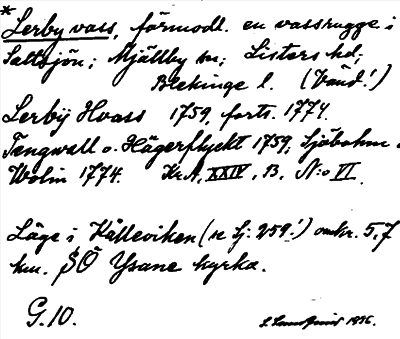 * Lerby vass, förmodl. en vassrugge i
Saltsjön; Mjällby sn; Listers hd;
Blekinge l. (Vänd!)
Lerbÿ Hvass 1759, forts. 1774.
Tengwall o. Hägerflyckt 1759; Sjöbohm o.
Wolin 1774. Kr.A. XXIV, B. N:o VI.
Läge i Kålleviken (se Sj: 259!) omkr. 5,7
km. SÖ Ysane kyrka.
G.10.
1936.